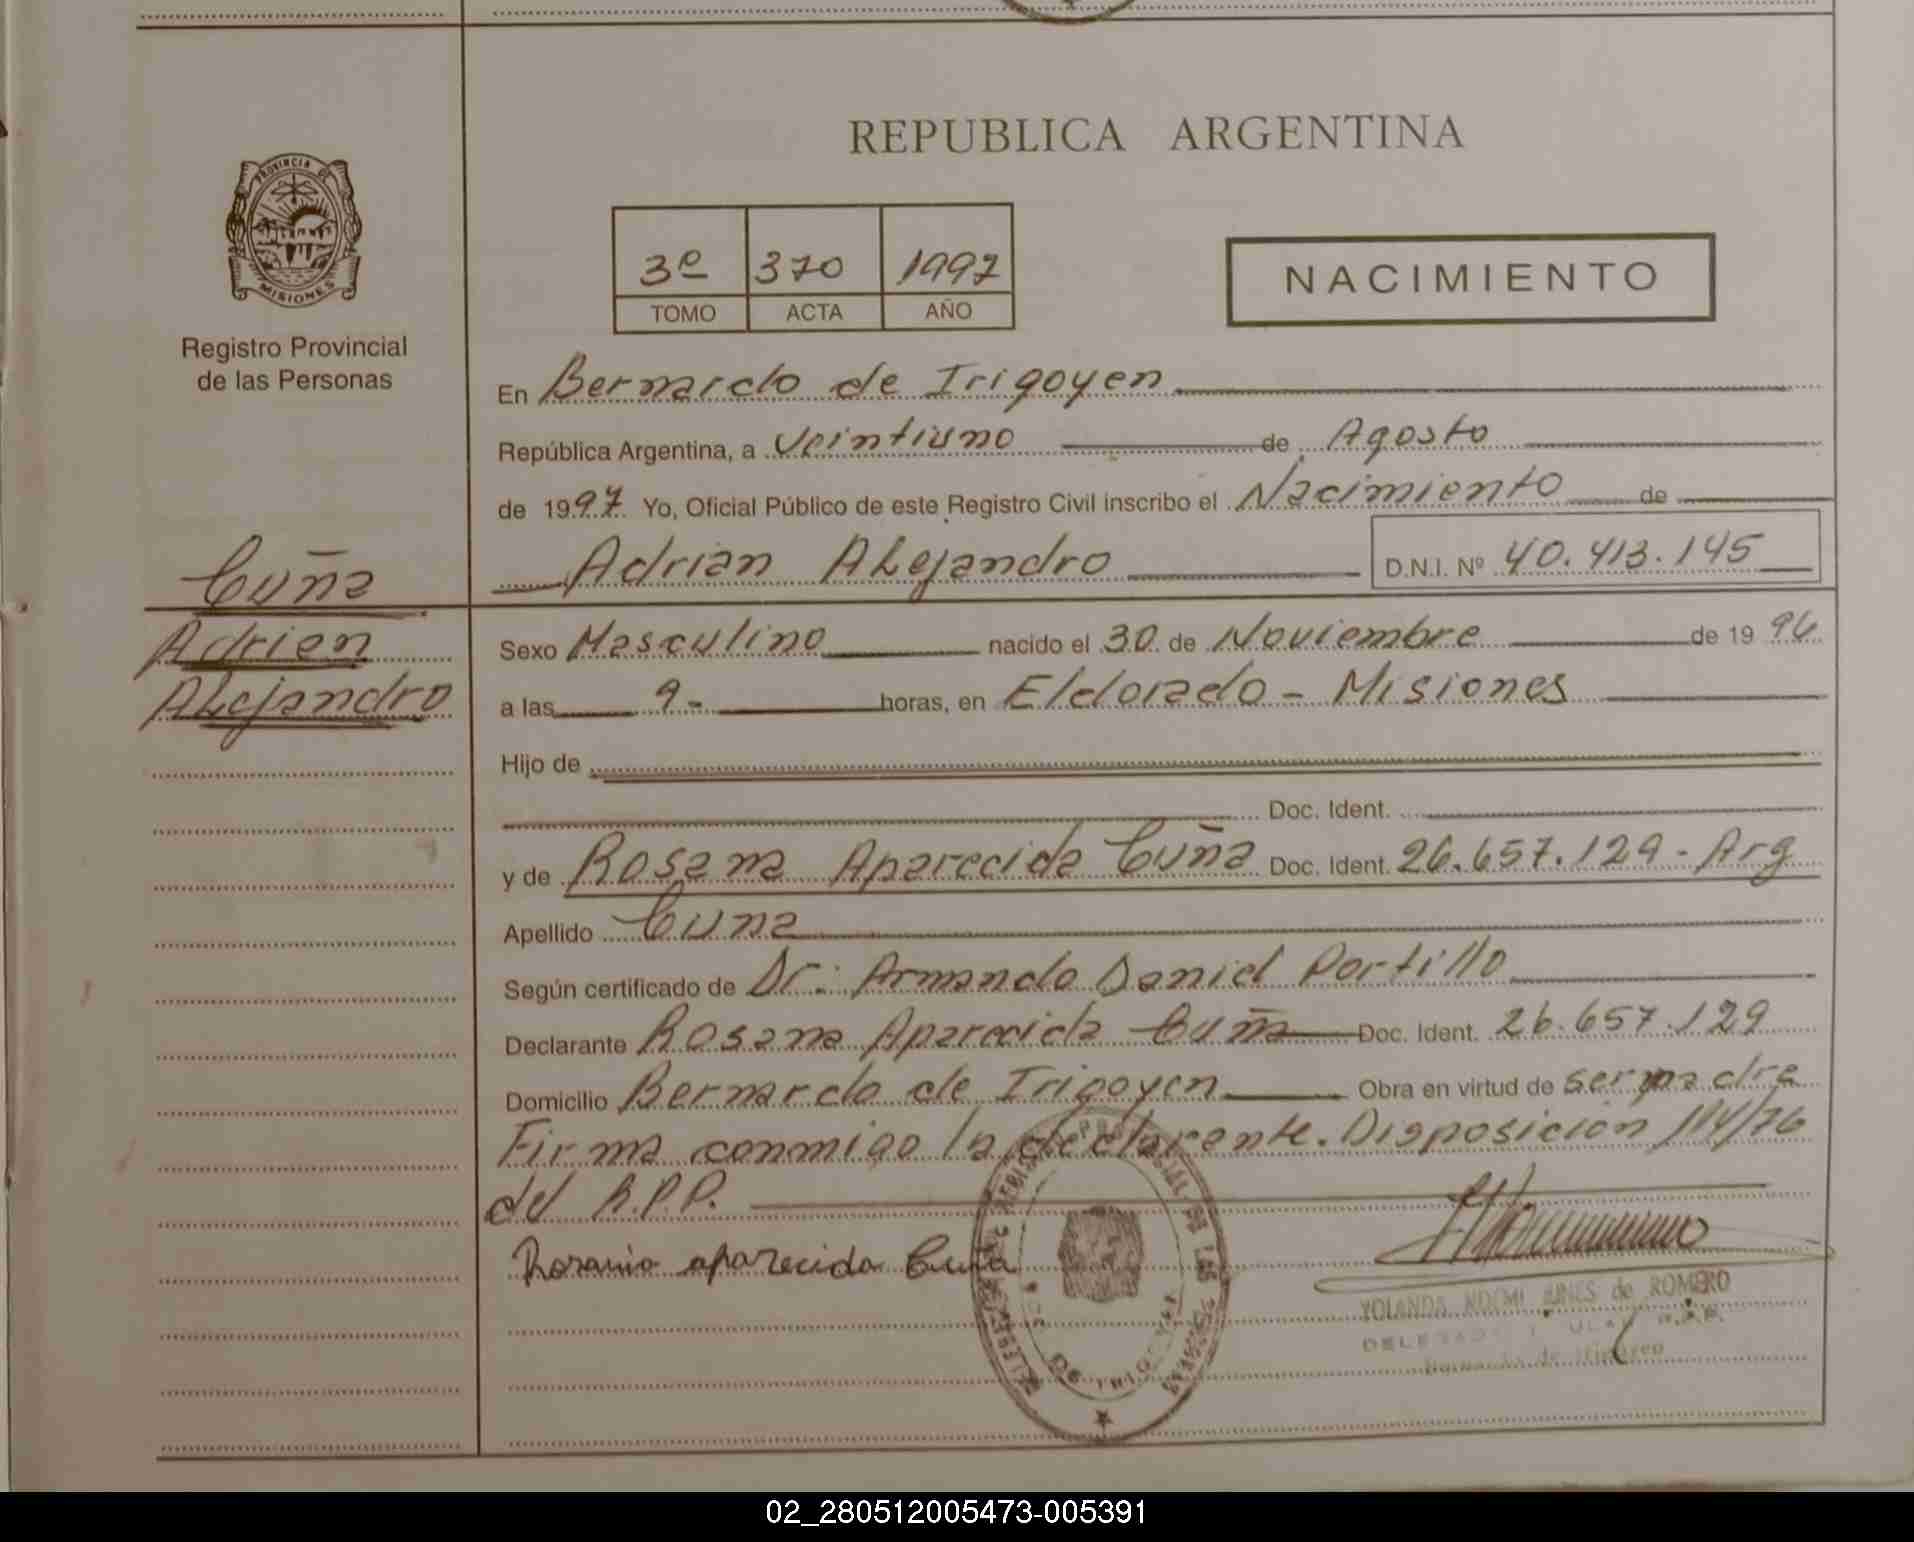 REPUBLICA ARGENTINA
PROVINCIA DE
MISIONES
Registro Provincial
de las Personas
3º 370 1997
TOMO ACTA AÑO
NACIMIENTO
En Bernardo de Irigoyen
República Argentina, a Veintiuno de Agosto
de 1997 Yo, Oficial Público de este Registro Civil inscribo el Nacimiento de
Adrian Alejandro D.N.I. Nº 40.413.145
Cuña
Adrian
Alejandro
Sexo Masculino nacido el 30 de Noviembre de 1996
a las 9- horas, en Eldorado - Misiones
Hijo de
Doc. Ident.
y de Rosana Aparecida Cuña Doc. Ident. 26.657.129 - Arg
Apellido Cuna
Según certificado de Dr: Armando Daniel Portillo
Declarante Rosana Aparecida Cuña Doc. Ident. 26.657.129
Domicilio Bernardo de Irigoyen Obra en virtud de ser madre
Firma conmigo la declarante. Disposición 114/76
del R.P.P.
Rosana aparecida Cuña
YOLANDA NOEMI de ROMERO
02_280512005473-005391